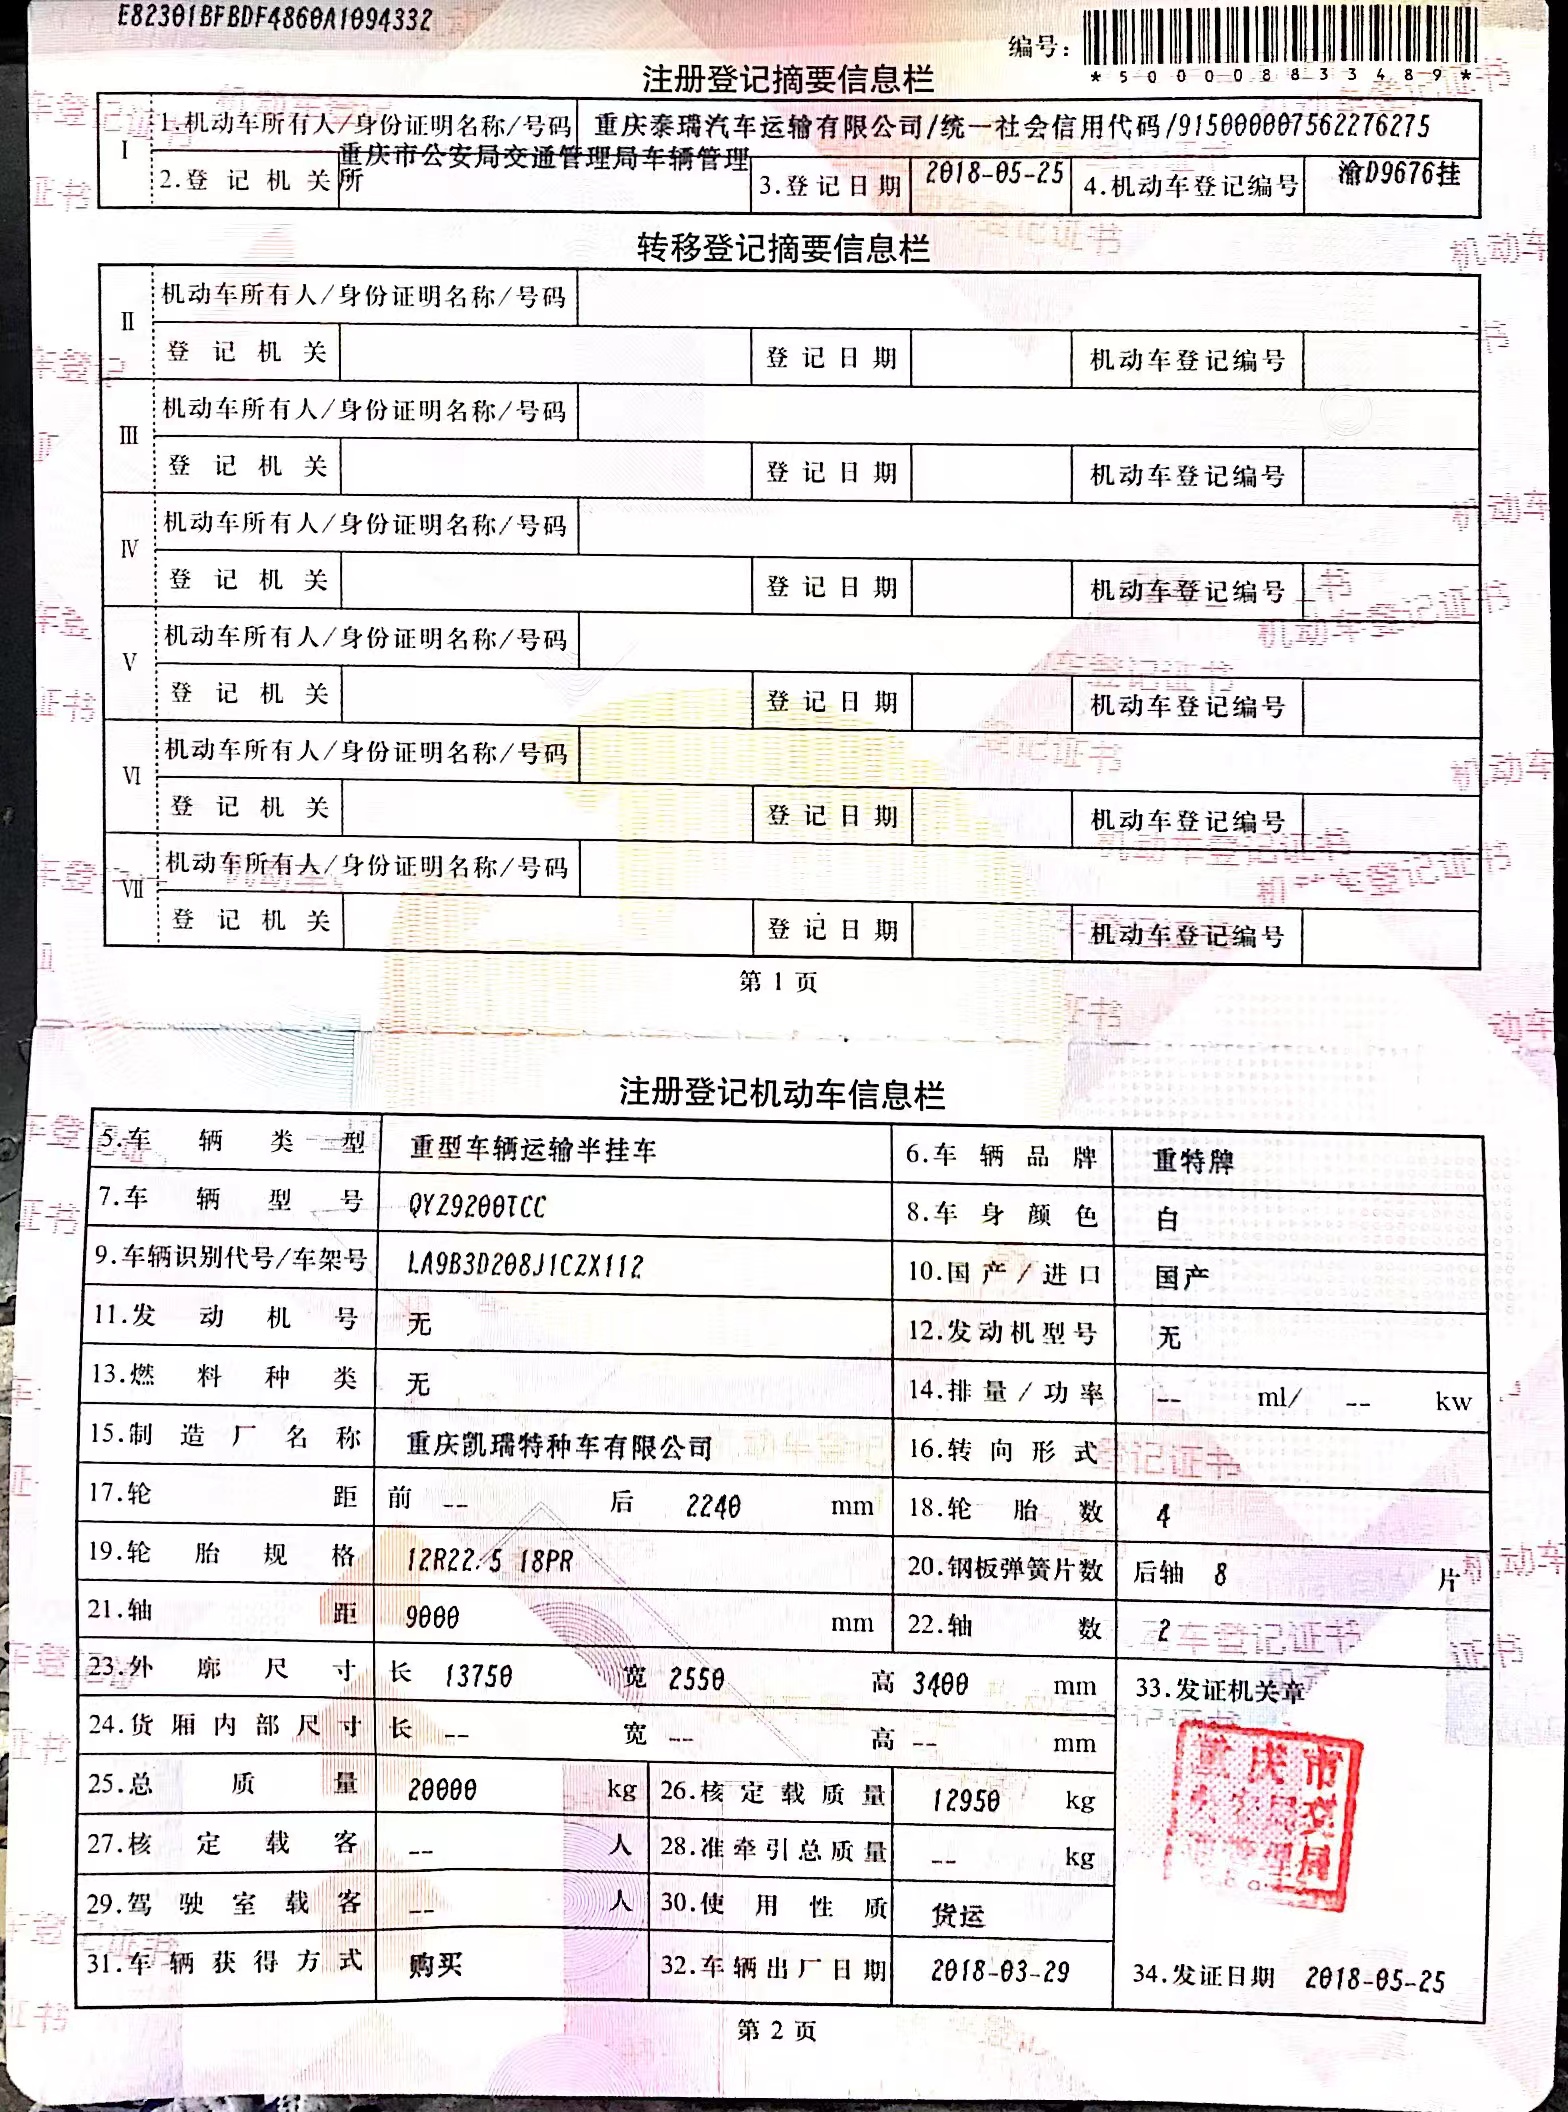 E82301BFBDF4860A1094332
编号：
*500008833489*
注册登记摘要信息栏
I
1.机动车所有人/身份证明名称/号码 重庆泰瑞汽车运输有限公司/统一社会信用代码/915000007562276275
2.登记机关 重庆市公安局交通管理局车辆管理所 3.登记日期 2018-05-25 4.机动车登记编号 渝D9676挂
转移登记摘要信息栏
II
机动车所有人/身份证明名称/号码
登记机关 登记日期 机动车登记编号
III
机动车所有人/身份证明名称/号码
登记机关 登记日期 机动车登记编号
IV
机动车所有人/身份证明名称/号码
登记机关 登记日期 机动车登记编号
V
机动车所有人/身份证明名称/号码
登记机关 登记日期 机动车登记编号
VI
机动车所有人/身份证明名称/号码
登记机关 登记日期 机动车登记编号
VII
机动车所有人/身份证明名称/号码
登记机关 登记日期 机动车登记编号
第 1 页
注册登记机动车信息栏
5.车辆类型 重型车辆运输半挂车 6.车辆品牌 重特牌
7.车辆型号 QYZ9200TCC 8.车身颜色 白
9.车辆识别代号/车架号 LA9B3D208J1CZX112 10.国产/进口 国产
11.发动机号 无 12.发动机型号 无
13.燃料种类 无 14.排量/功率 -- ml/ -- kw
15.制造厂名称 重庆凯瑞特种车有限公司 16.转向形式
17.轮距 前 -- 后 2240 mm 18.轮胎数 4
19.轮胎规格 12R22.5 18PR 20.钢板弹簧片数 后轴 8 片
21.轴距 9000 mm 22.轴数 2
23.外廓尺寸 长 13750 宽 2550 高 3400 mm 33.发证机关章
24.货厢内部尺寸 长 -- 宽 -- 高 -- mm
25.总质量 20000 kg 26.核定载质量 12950 kg
27.核定载客 -- 人 28.准牵引总质量 -- kg
29.驾驶室载客 -- 人 30.使用性质 货运
31.车辆获得方式 购买 32.车辆出厂日期 2018-03-29 34.发证日期 2018-05-25
第 2 页